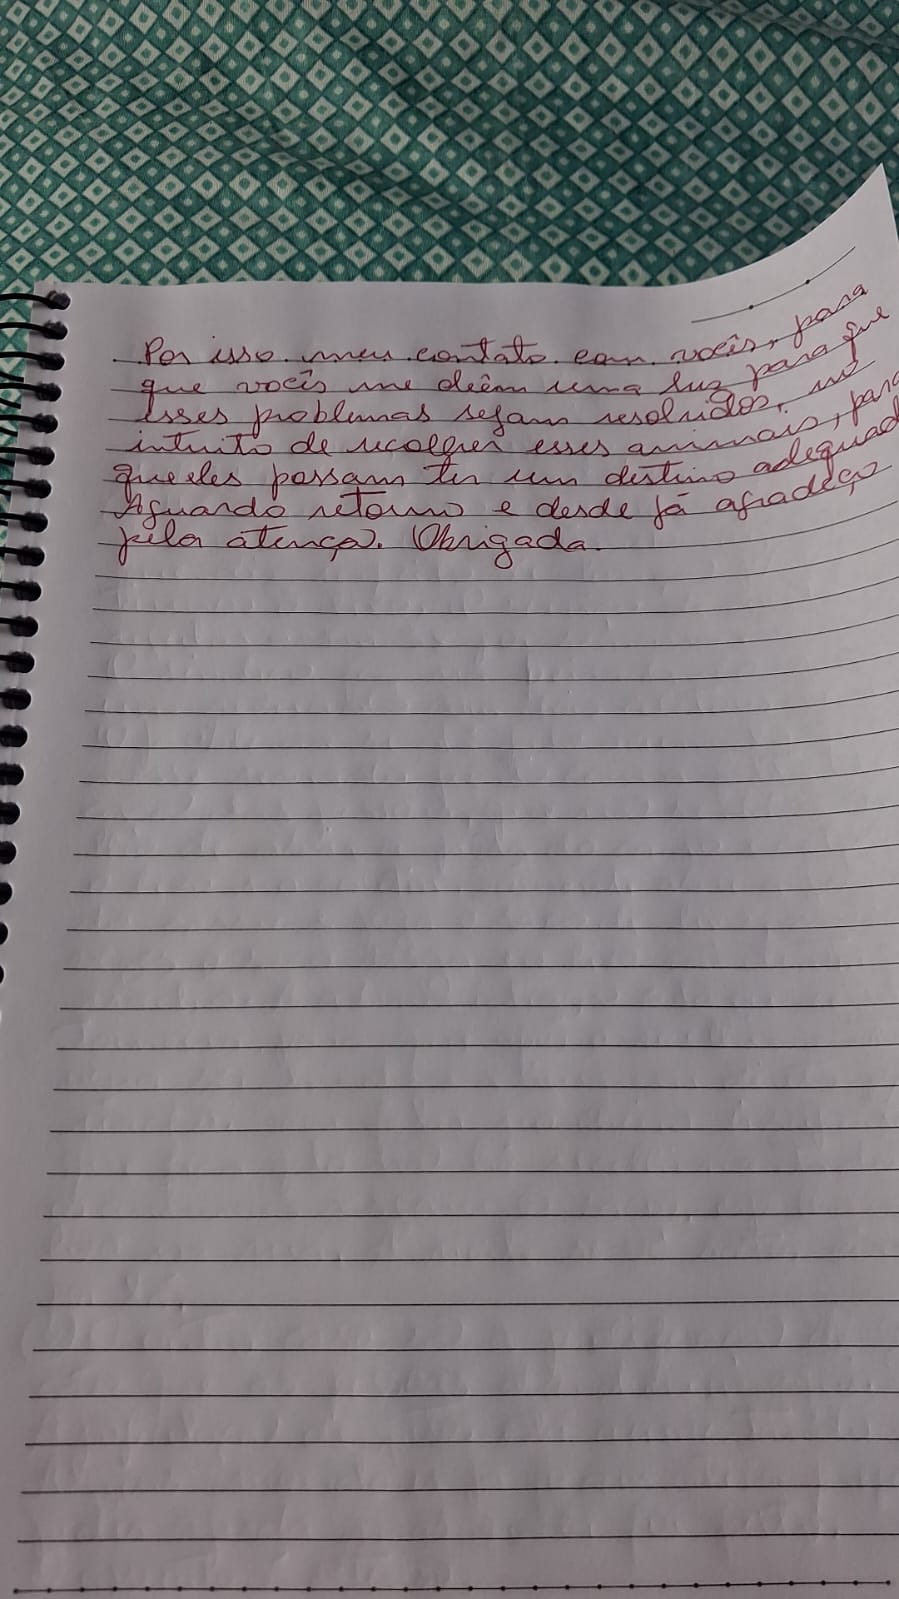 Por isso meu contato com vocês, para
que vocês me dêem uma luz para que
esses problemas sejam resolvidos, no
intuito de recolher esses animais, para
que eles possam ter um destino adequad
Aguardo retorno e desde já agradeço
pela atença. Obrigada.